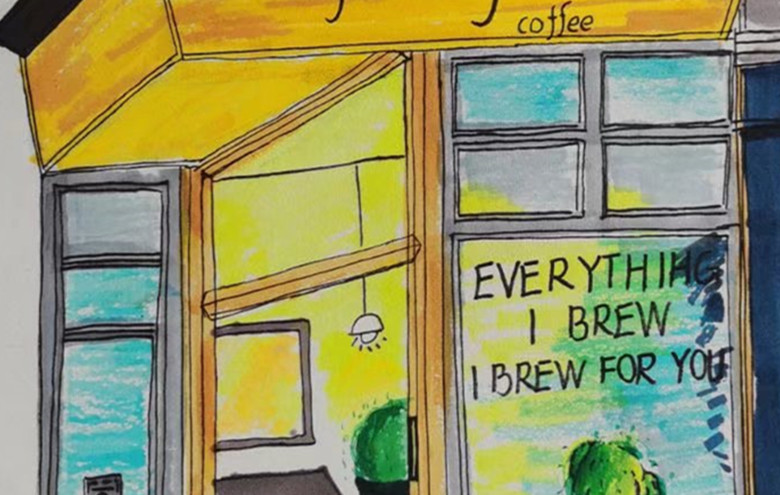 coffee
EVERYTHING
I BREW
I BREW FOR YOU